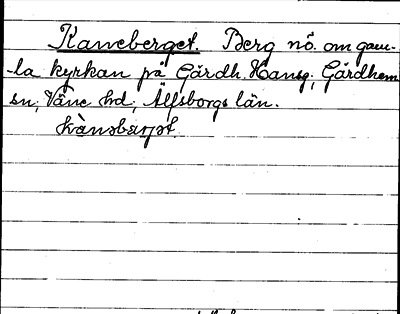 Kaneberget. Berg nö. om gam-
-la kyrkan på Gärdh. Hansg., Gärdhem
sn, Väne hd, Älfsborgs län.